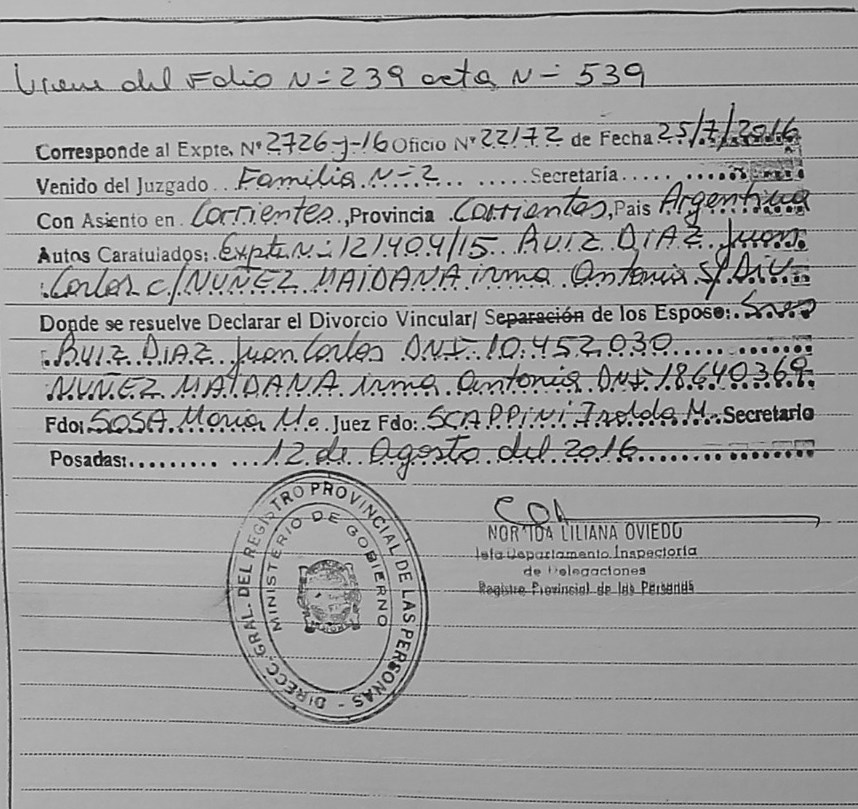 Viene del Folio N= 239 acta N= 539
Corresponde al Expte. Nº 2726-J-16 Oficio Nº 22172 de Fecha 25/7/2016
Venido del Juzgado... Familia N=2......... Secretaría.....
Con Asiento en Corrientes, Provincia Corrientes, Pais Argentina
Autos Caratulados: Expte N= 121404/15 RUIZ DIAZ Juan
Carlos c/ NUÑEZ MAIDANA irma Antonia S/ Div.
Donde se resuelve Declarar el Divorcio Vincular/ Separación de los Esposo:
RUIZ DIAZ Juan Carlos DNI- 10.452.030
NUÑEZ MAIDANA irma antonia DNI 18.640369
Fdo: SOSA Maria M. Juez Fdo: SCAPPINI Isolda M. Secretario
Posadas:......... 12 de Agosto del 2016
DIRECC. GRAL. DEL REGISTRO PROVINCIAL DE LAS PERSONAS -
MINISTERIO DE GOBIERNO
LILIANA OVIEDO
Departamento Inspectoria
de Delegaciones
Registro Provincial de las Personas